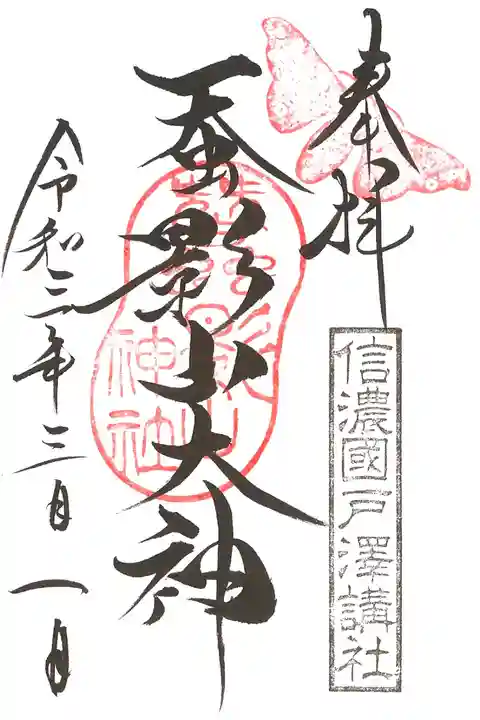 奉拝
信濃國戸澤講社
蚕影山大神
蚕影山
神社
令和三年三月一日